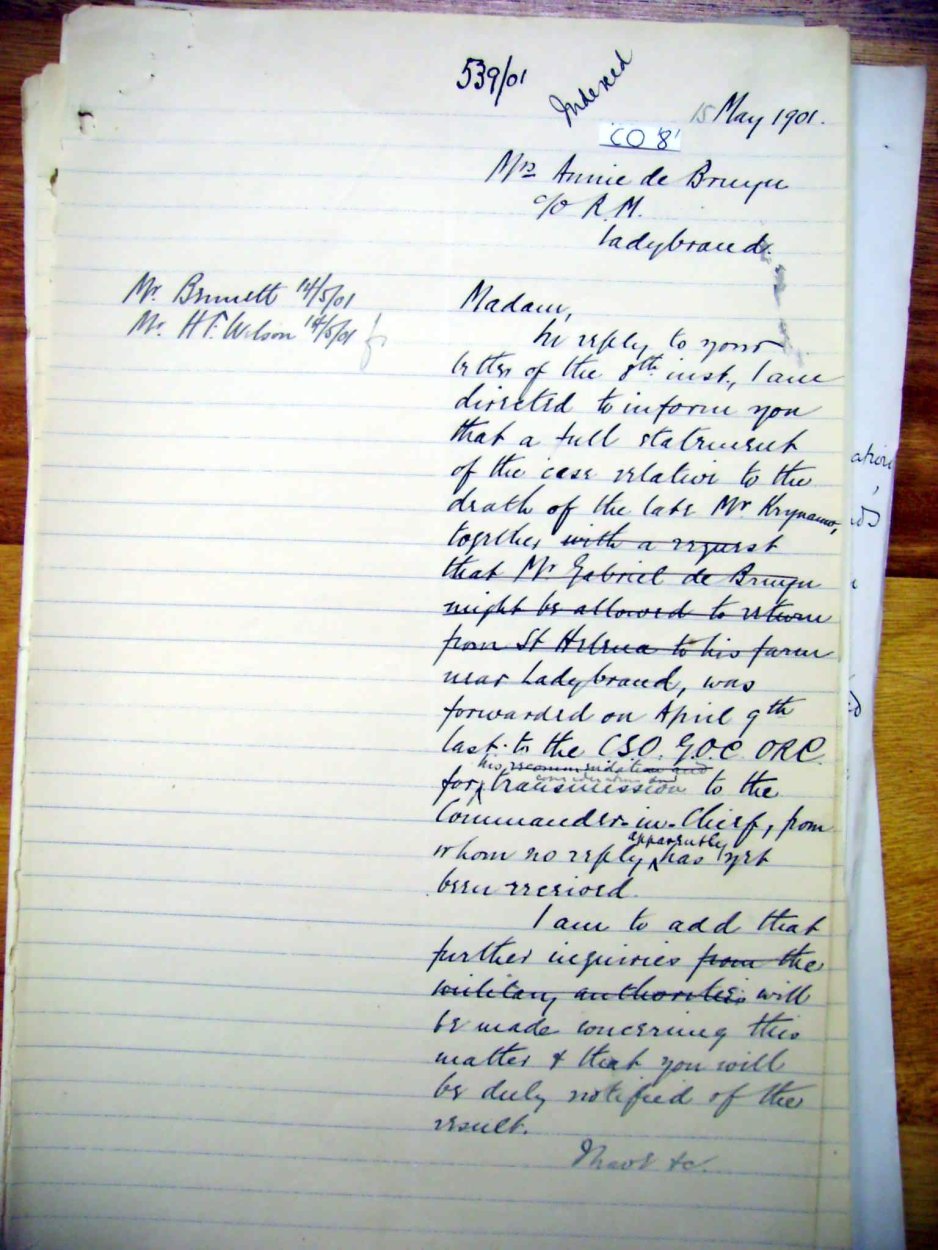 539/01
Indexed
15 May 1901.
CO 8
Mrs Annie de Bruyn
c/o R.M.
Ladybrand.
Mr. Brunett 14/5/01
Mr. H F. Wilson 14/5/01
Madam,
In reply to your
letter of the 8th inst., I am
directed to inform you
that a full statement
of the case relative to the
death of the late Mr
together with a request
that Mr Gabriel de Bruyn
might be allowed to return
from St Helena to his farm
near Ladybrand, was
forwarded on April 9th
last to the CSO. G.O.C. ORC.
his recommendation and
consideration and
for transmission to the
Commander-in-Chief, from
apparently
whom no reply has yet
been received.
I am to add that
further inquiries from the
military authorities will
be made concerning this
matter & that you will
be duly notified of the
result.
I have &c.